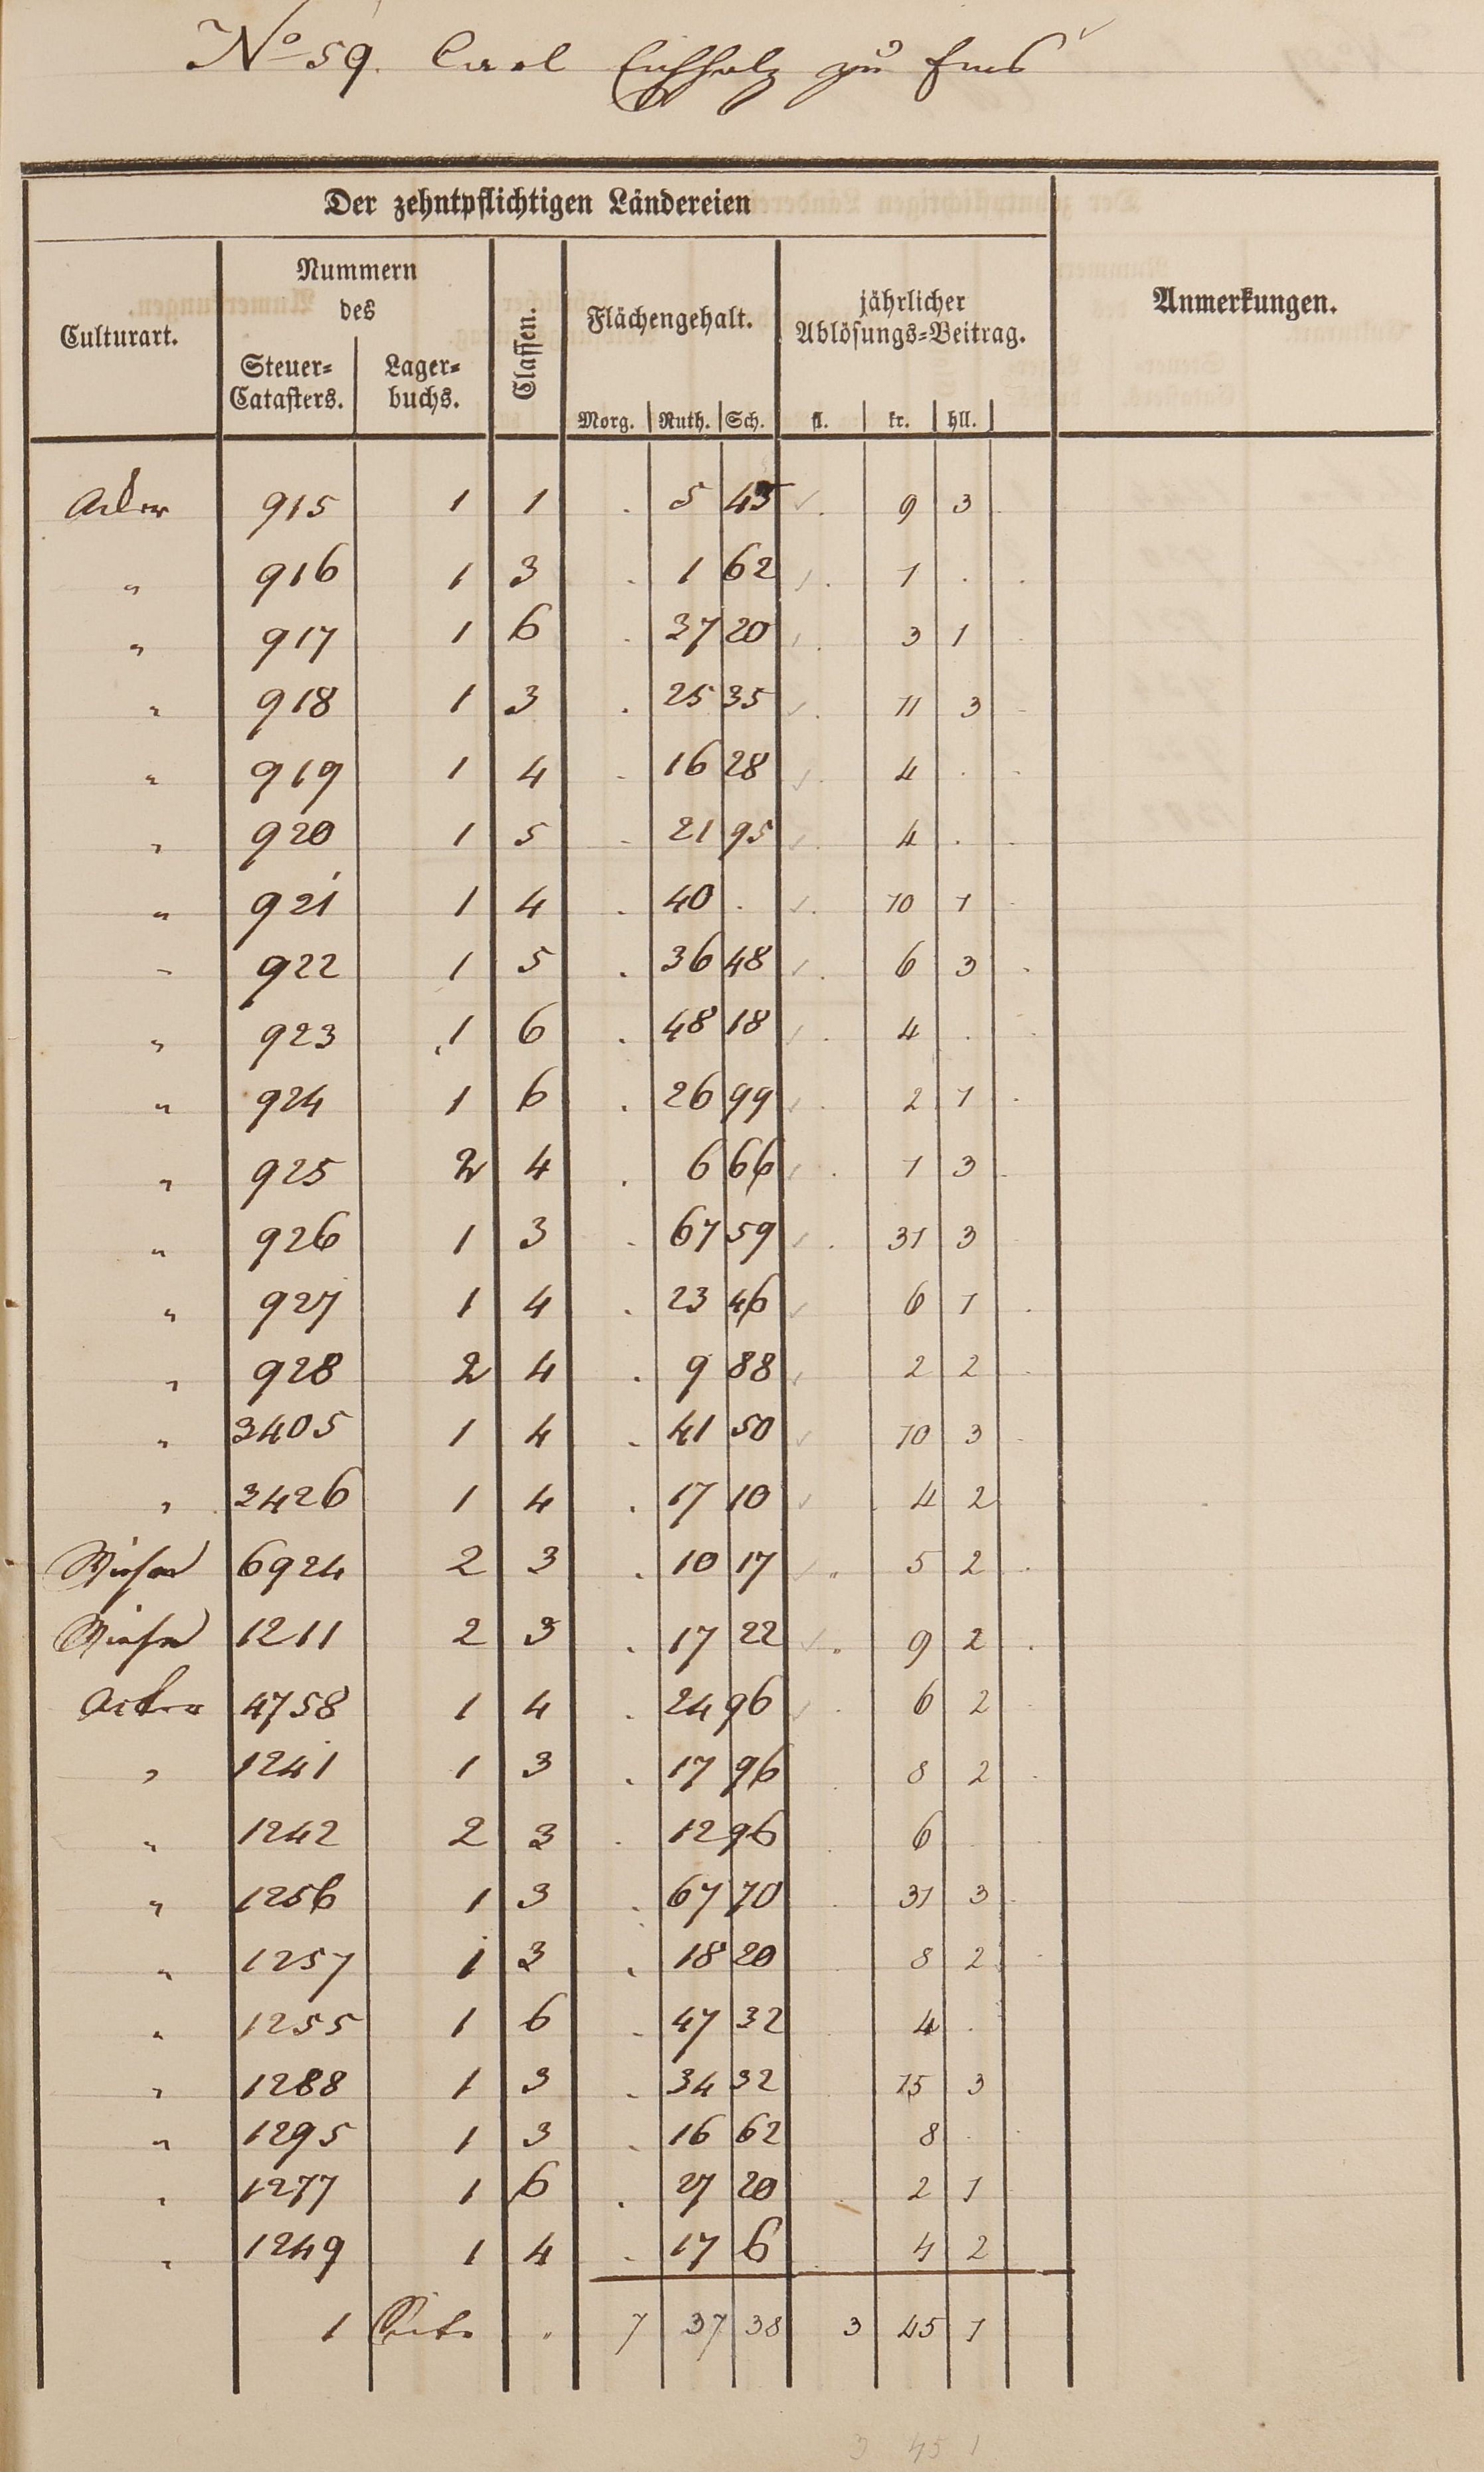 No 59. Carl Eichholz zu Ems
Der zehntpflichtigen Ländereien
Anmerkungen.
Culturart.
Nummern
des
Steuer-
Catasters.
Lager-
buchs.
Classen.
Flächengehalt.
Morg. Ruth. Sch.
jährlicher
Ablösungs-Beitrag.
fl. kr. hll.
Acker 915 1 1 . 5 45 . 9 3
" 916 1 3 . 1 62 . 1 .
" 917 1 6 . 37 20 . 3 1
" 918 1 3 . 25 35 . 11 3
" 919 1 4 . 16 28 . 4 .
" 920 1 5 . 21 95 . 4 .
" 921 1 4 . 40 . . 10 1
" 922 1 5 . 36 48 . 6 3
" 923 1 6 . 48 18 . 4 .
" 924 1 6 . 26 99 . 2 1
" 925 2 4 . 6 66 . 1 3
" 926 1 3 . 67 59 . 31 3
" 927 1 4 . 23 46 6 1
" 928 2 4 . 9 88 2 2
" 3405 1 4 . 41 50 10 3
" 3426 1 4 . 17 10 . 4 2
Wiesen 6924 2 3 . 10 17 " 5 2
Wiesen 1211 2 3 . 17 22 " 9 2
Acker 4758 1 4 . 24 96 . 6 2
" 1241 1 3 . 17 96 . 8 2
" 1242 2 3 . 12 96 . 6
" 1256 1 3 . 67 70 . 31 3
" 1257 1 3 . 18 20 . 8 2
" 1255 1 6 . 47 32 4 .
" 1288 1 3 . 34 32 15 3
" 1295 1 3 . 16 62 8 .
" 1277 1 6 . 27 20 2 1
" 1249 1 4 . 17 6 . 4 2
1 Seite " 7 37 38 3 45 1
3 45 1